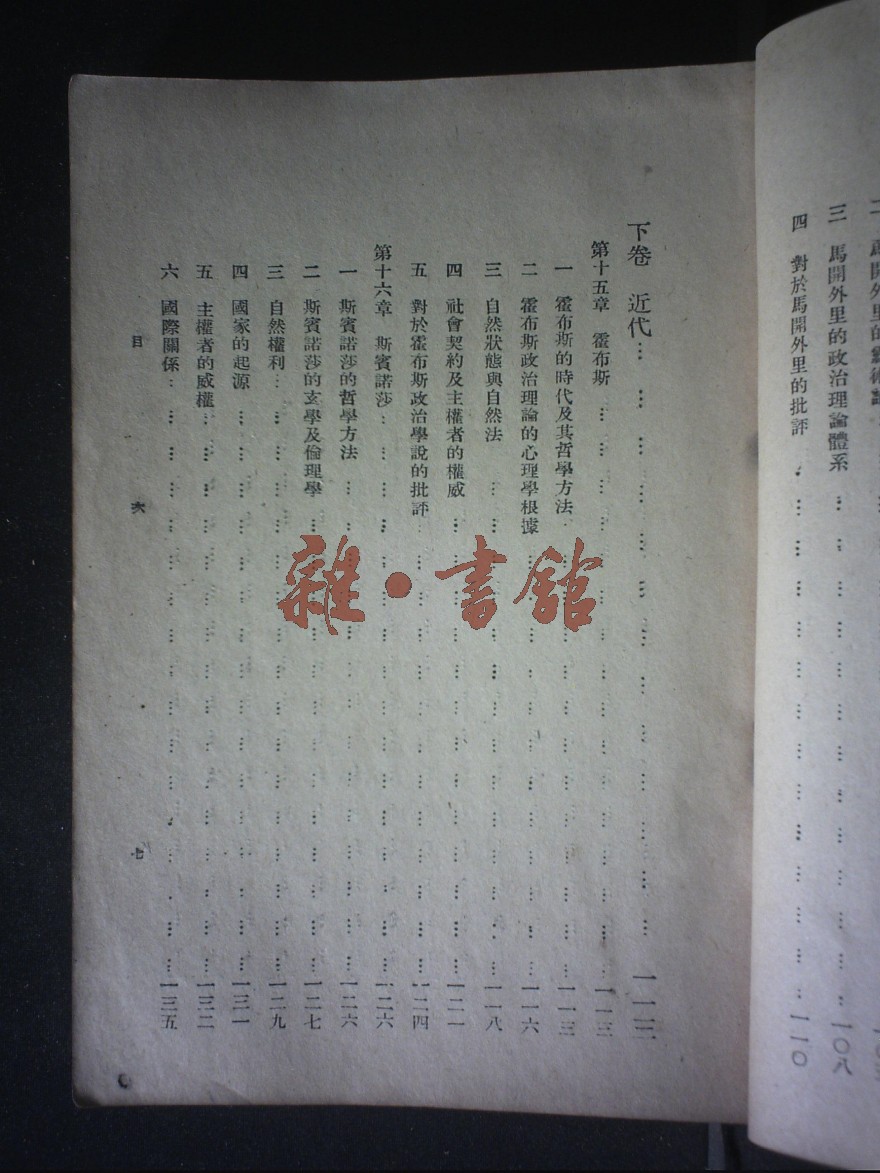 三 馬開外里的政治理論體系 … 一〇八
四 對於馬開外里的批評 … 一一〇
下卷 近代 … 一一三
第十五章 霍布斯 … 一一三
一 霍布斯的時代及其哲學方法 … 一一三
二 霍布斯政治理論的心理學根據 … 一一六
三 自然狀態與自然法 … 一一八
四 社會契約及主權者的權威 … 一二一
五 對於霍布斯政治學說的批評 … 一二四
第十六章 斯賓諾莎 … 一二六
一 斯賓諾莎的哲學方法 … 一二六
二 斯賓諾莎的玄學及倫理學 … 一二七
三 自然權利 … 一二九
四 國家的起源 … 一三一
五 主權者的威權 … 一三二
六 國際關係 … 一三五
目 次 七
雜·書館